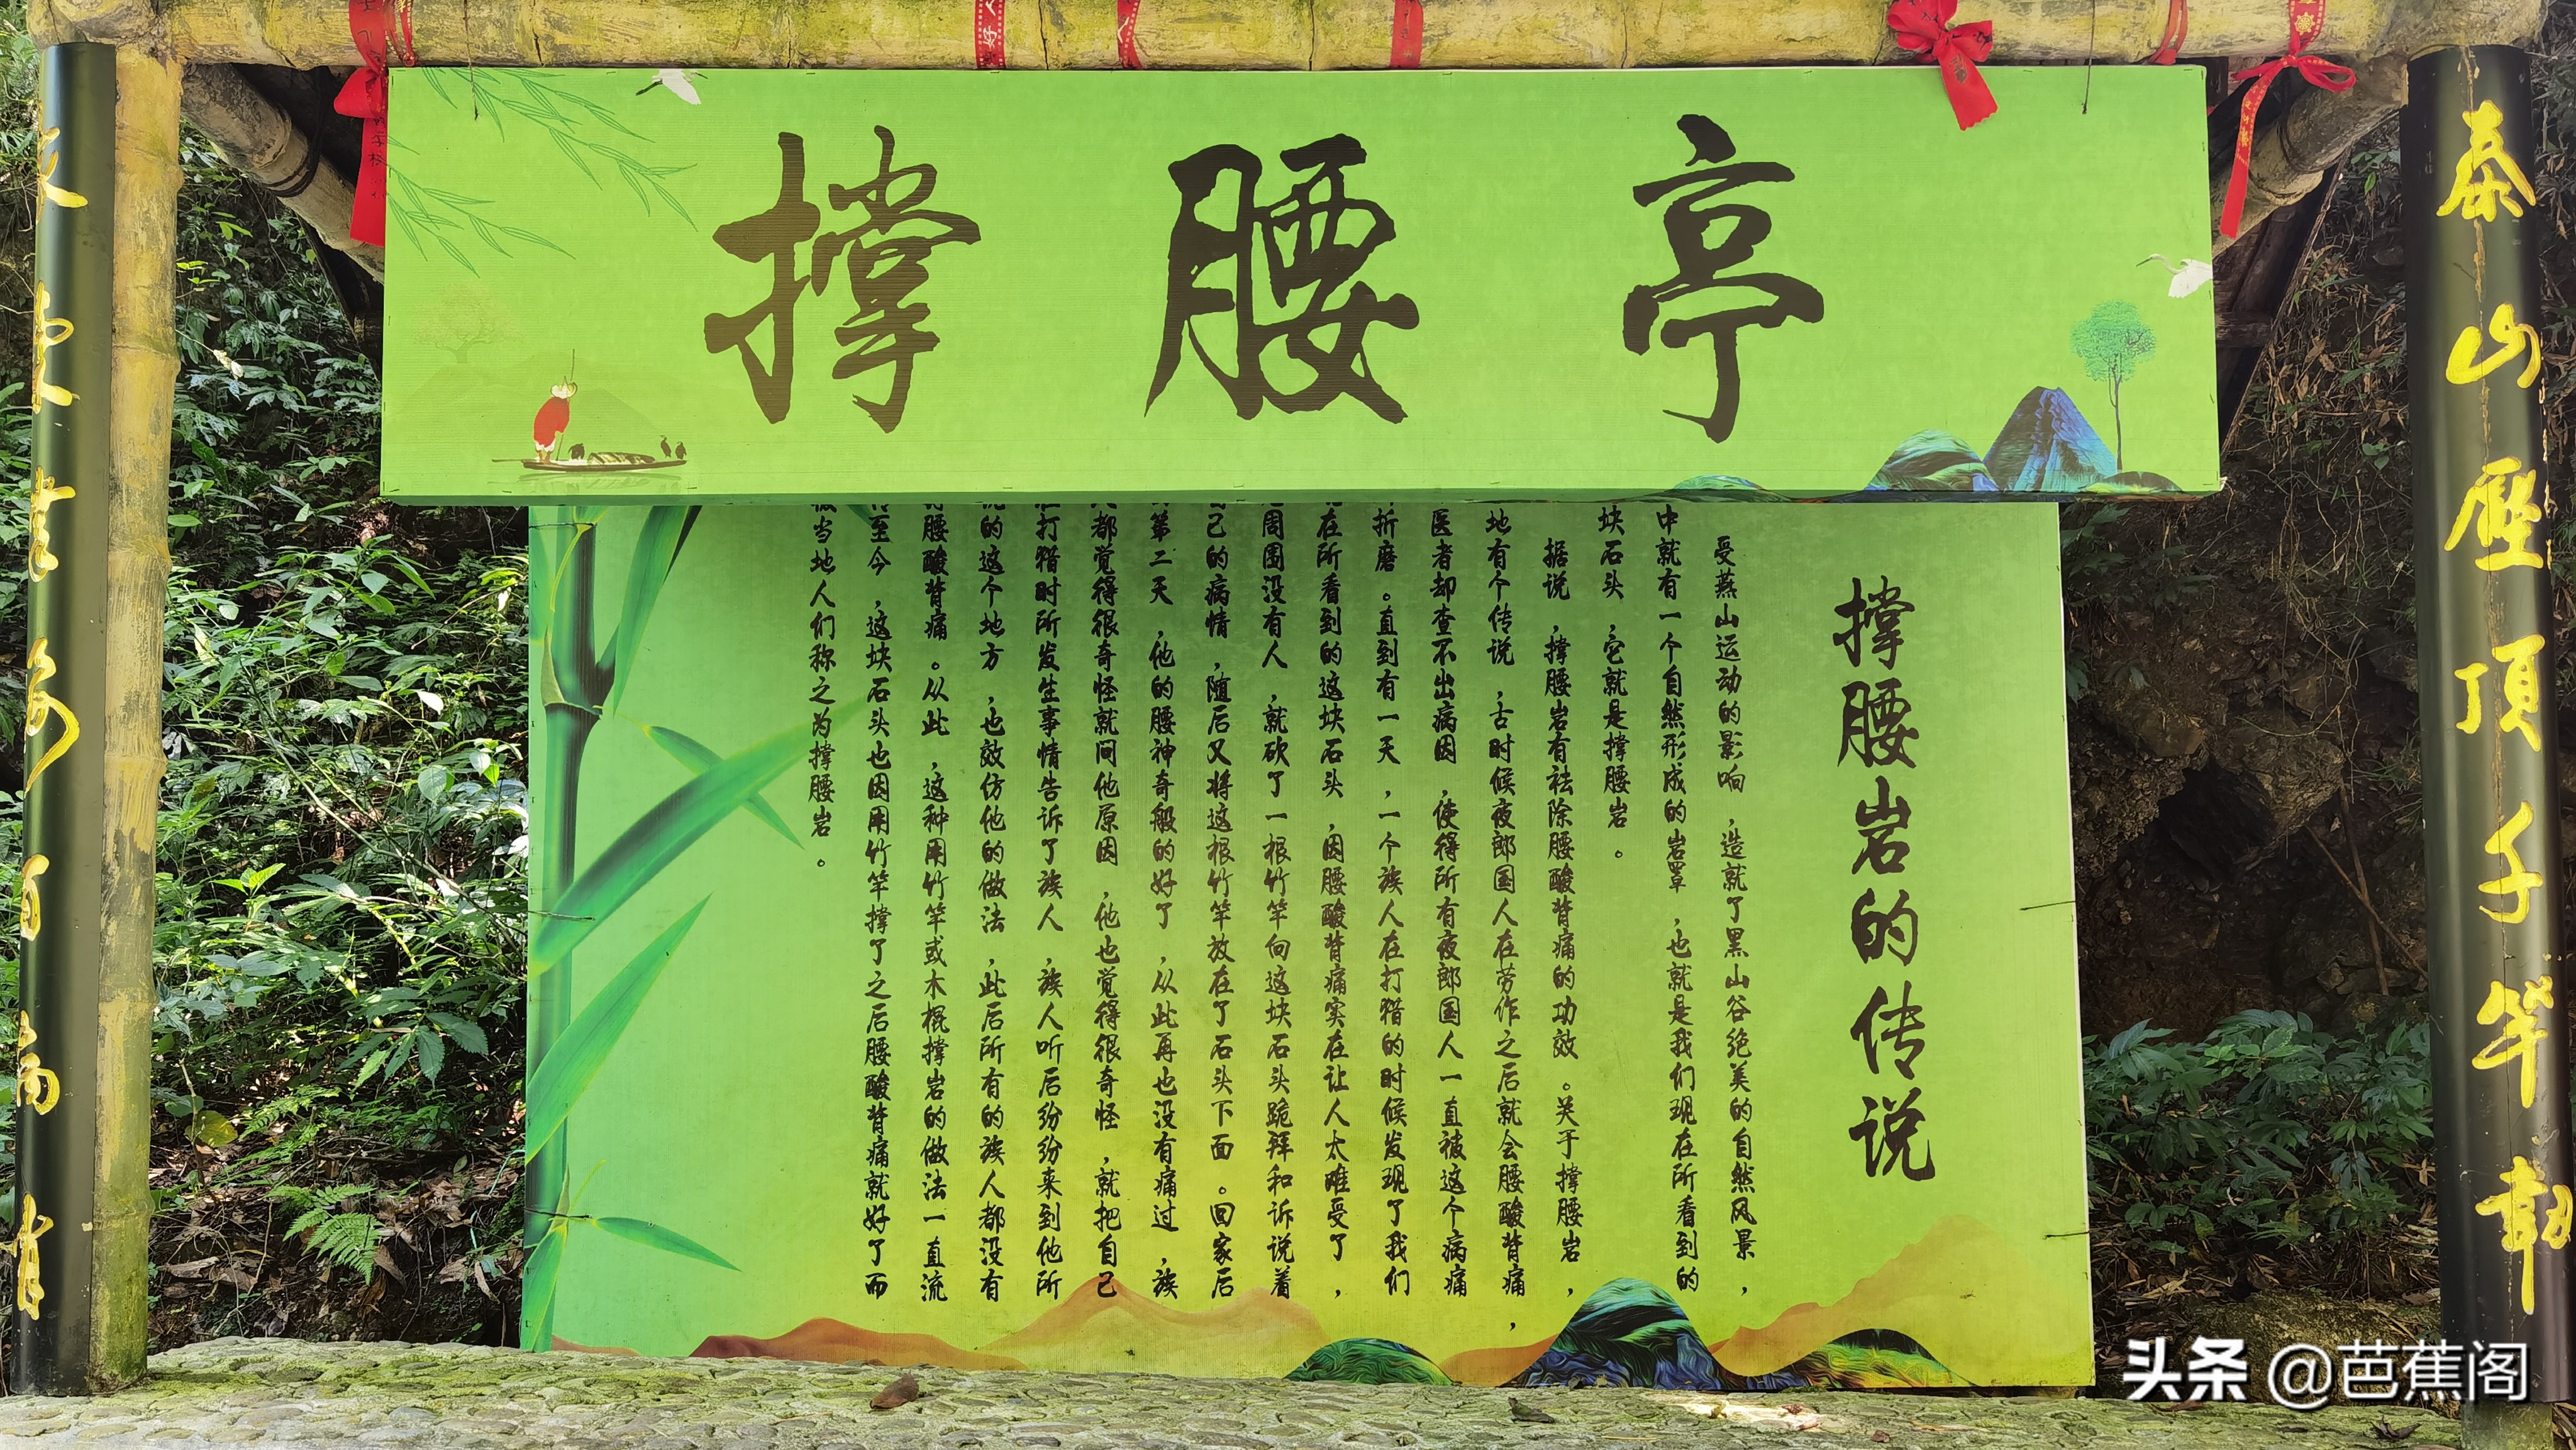 撑腰亭
泰山壓頂千
百病
撑腰岩的传说
受燕山运动的影响，造就了黑山谷绝美的自然风景，
中就有一个自然形成的岩罩，也就是我们现在所看到的
块石头，它就是撑腰岩。
据说，撑腰岩有祛除腰酸背痛的功效。关于撑腰岩，
地有个传说，古时候夜郎国人在劳作之后就会腰酸背痛，
医者却查不出病因，使得所有夜郎国人一直被这个病痛
折磨。直到有一天，一个族人在打猎的时候发现了我们
在所看到的这块石头，因腰酸背痛实在让人太难受了，
周围没有人，就砍了一根竹竿向这块石头跪拜和诉说着
己的病情，随后又将这根竹竿放在了石头下面。回家后
第二天，他的腰神奇般的好了，从此再也没有痛过，族
都觉得很奇怪就问他原因，他也觉得很奇怪，就把自己
打猎时所发生事情告诉了族人，族人听后纷纷来到他所
的这个地方，也效仿他的做法，此后所有的族人都没有
腰酸背痛。从此，这种用竹竿或木棍撑岩的做法一直流
至今，这块石头也因用竹竿撑了之后腰酸背痛就好了而
当地人们称之为撑腰岩。
头条 @芭蕉阁